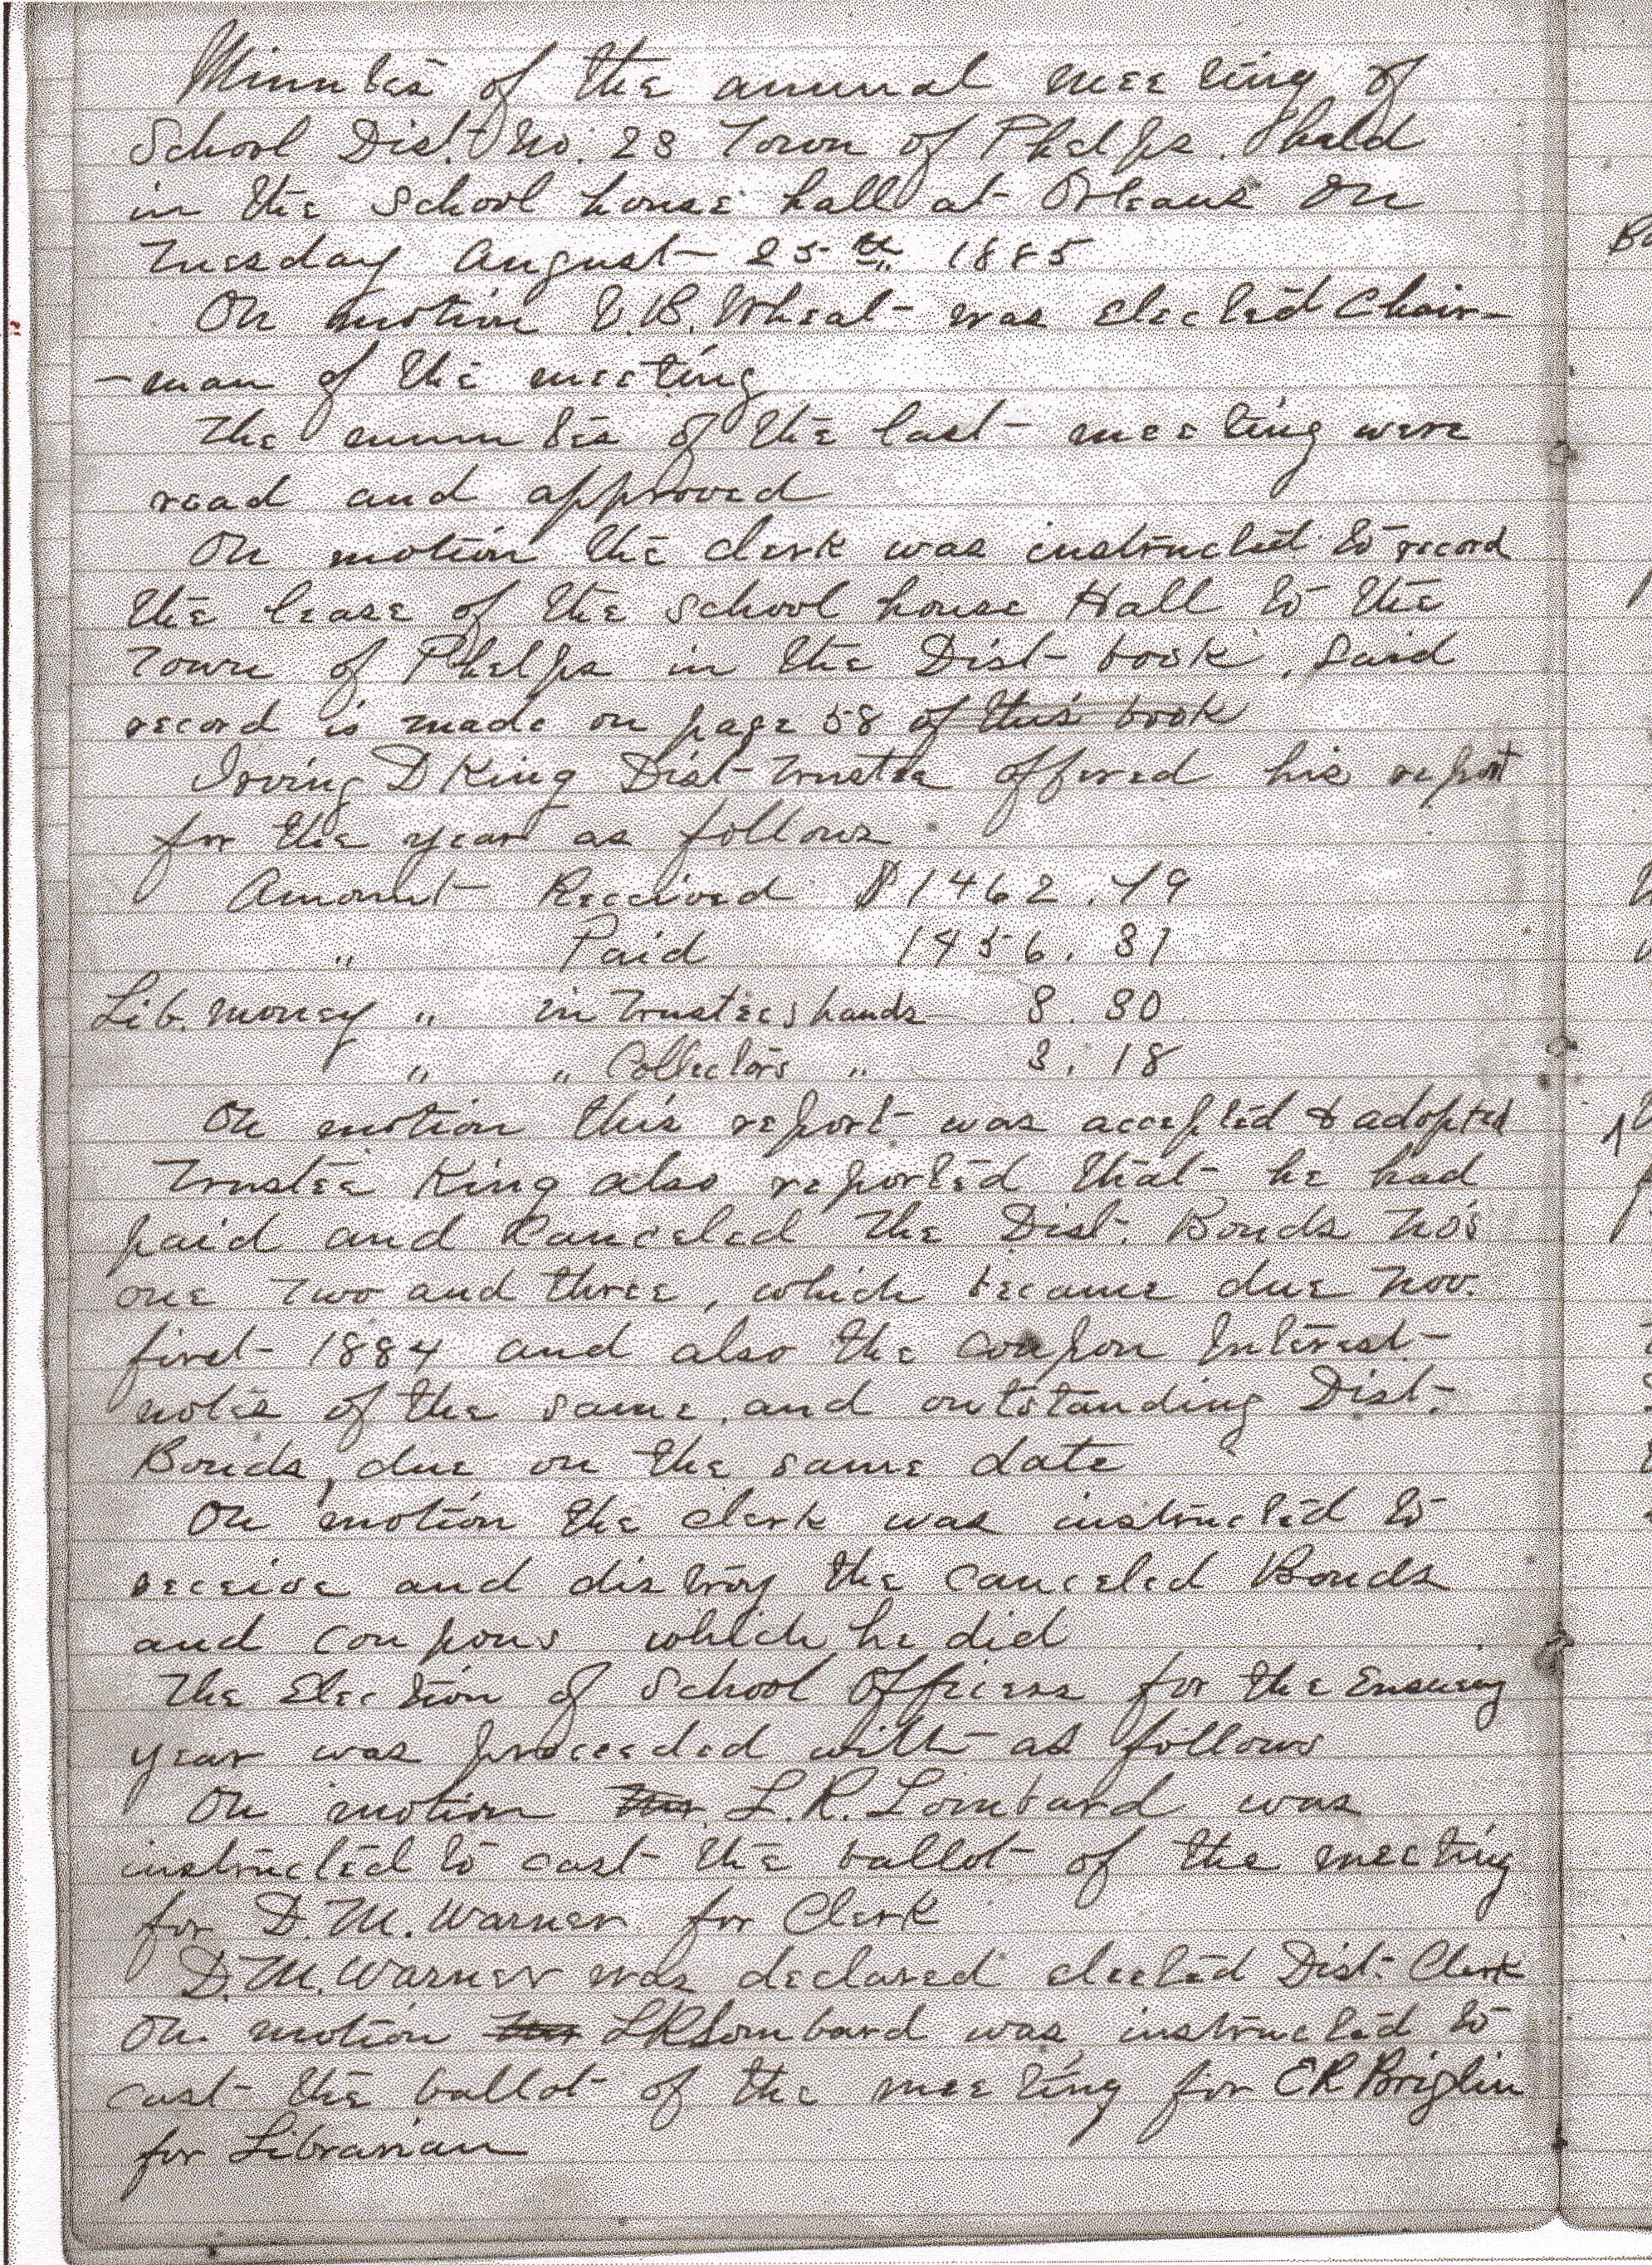 Minutes of the annual meeting of
School Dist. No. 23 Town of Phelps. held
in the School house hall at Orleans On
Tuesday August 25th 1885
On motion V.B. Wheat was elected Chair-
-man of the meeting
The minutes of the last meeting were
read and approved
On motion the clerk was instructed to record
the lease of the School house Hall to the
Town of Phelps in the Dist book, Said
record is made on page 58 of this book
Irving D King Dist Trustee offered his report
for the year as follows
Amount Received $1462.79
" Paid 1456.31
Lib. money " in Trustees hands 3.30
" " Collectors " 3.18
On motion this report was accepted & adopted
Trustee King also reported that he had
paid and Canceled the Dist. Bonds No's
one Two and three, which became due Nov.
first 1884 and also the coupon Interest
notes of the same, and outstanding Dist.
Bonds, due on the same date
On motion the clerk was instructed to
receive and distroy the canceled Bonds
and coupons which he did
The Election of School Officers for the Ensuing
year was proceeded with as follows
On motion L.R. Lombard was
instructed to cast the ballot of the meeting
for D. M. Warner for Clerk
D. M. Warner was declared elected Dist. Clerk
On motion LR Lombard was instructed to
cast the ballot of the meeting for ER Briglin
for Librarian